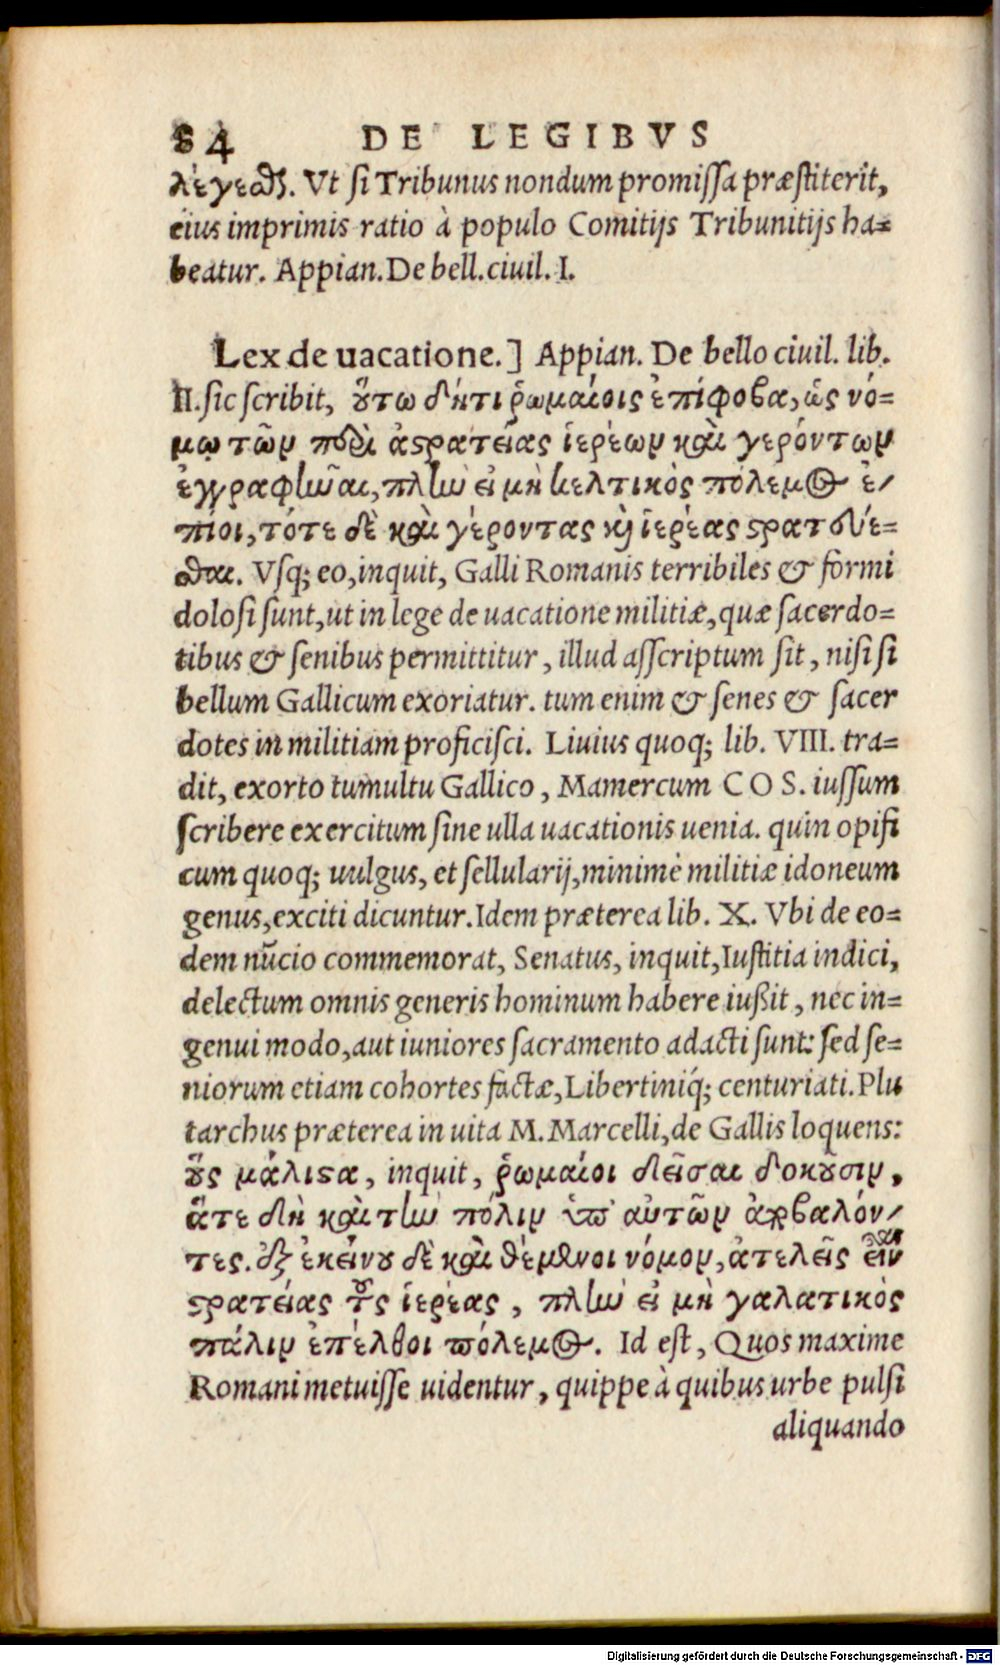 84 DE LEGIBVS
λέγεσθ. Vt si Tribunus nondum promissa præstiterit,
eius imprimis ratio à populo Comitijs Tribunitijs ha=
beatur. Appian. De bell. ciuil. I.
Lex de uacatione.] Appian. De bello ciuil. lib.
II. sic scribit, ὅτω δήτι ῥωμαίοις ἐπίφοβα, ὡς νό=
μῳ τῶν περὶ ἀστρατείας ἱερέων καὶ γερόντων
ἐγγραφῆναι, πλὴν εἰ μὴ κελτικὸς πόλεμος ἐ/
πίοι, τότε δὲ καὶ γέροντας καὶ ἱερέας στρατεύε=
σθαι. Vsq; eo, inquit, Galli Romanis terribiles & formi
dolosi sunt, ut in lege de uacatione militiæ, quæ sacerdo=
tibus & senibus permittitur, illud asscriptum sit, nisi si
bellum Gallicum exoriatur. tum enim & senes & sacer
dotes in militiam proficisci. Liuius quoq; lib. VIII. tra=
dit, exorto tumultu Gallico, Mamercum COS. iussum
scribere exercitum sine ulla uacationis uenia. quin opifi
cum quoq; uulgus, et sellularij, minimè militiæ idoneum
genus, exciti dicuntur. Idem præterea lib. X. Vbi de eo=
dem nūcio commemorat, Senatus, inquit, Iustitia indici,
delectum omnis generis hominum habere iußit, nec in=
genui modo, aut iuniores sacramento adacti sunt: sed se=
niorum etiam cohortes factæ, Libertiniq́; centuriati. Plu
tarchus præterea in uita M. Marcelli, de Gallis loquens:
οὓς μάλιστα, inquit, ῥωμαίοι δεῖσαι δοκοῦσιν,
ἅτε δὴ καὶ τὴν πόλιν ὑπ' αὐτῶν ἀποβαλόν/
τες. ἐξ ἐκείνου δὲ καὶ θέμενοι νόμον, ἀτελεῖς εἶναι
στρατείας τοὺς ἱερέας, πλὴν εἰ μὴ γαλατικὸς
πάλιν ἐπέλθοι πόλεμος. Id est, Quos maxime
Romani metuisse uidentur, quippe à quibus urbe pulsi
aliquando
Digitalisierung gefördert durch die Deutsche Forschungsgemeinschaft - DFG